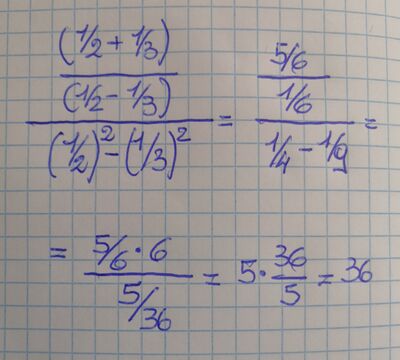 (1/2 + 1/3)
(1/2 - 1/3)
(1/2)² - (1/3)²
=
5/6
1/6
1/4 - 1/9
=
= 5/6 · 6
5/36
= 5 · 36/5 = 36